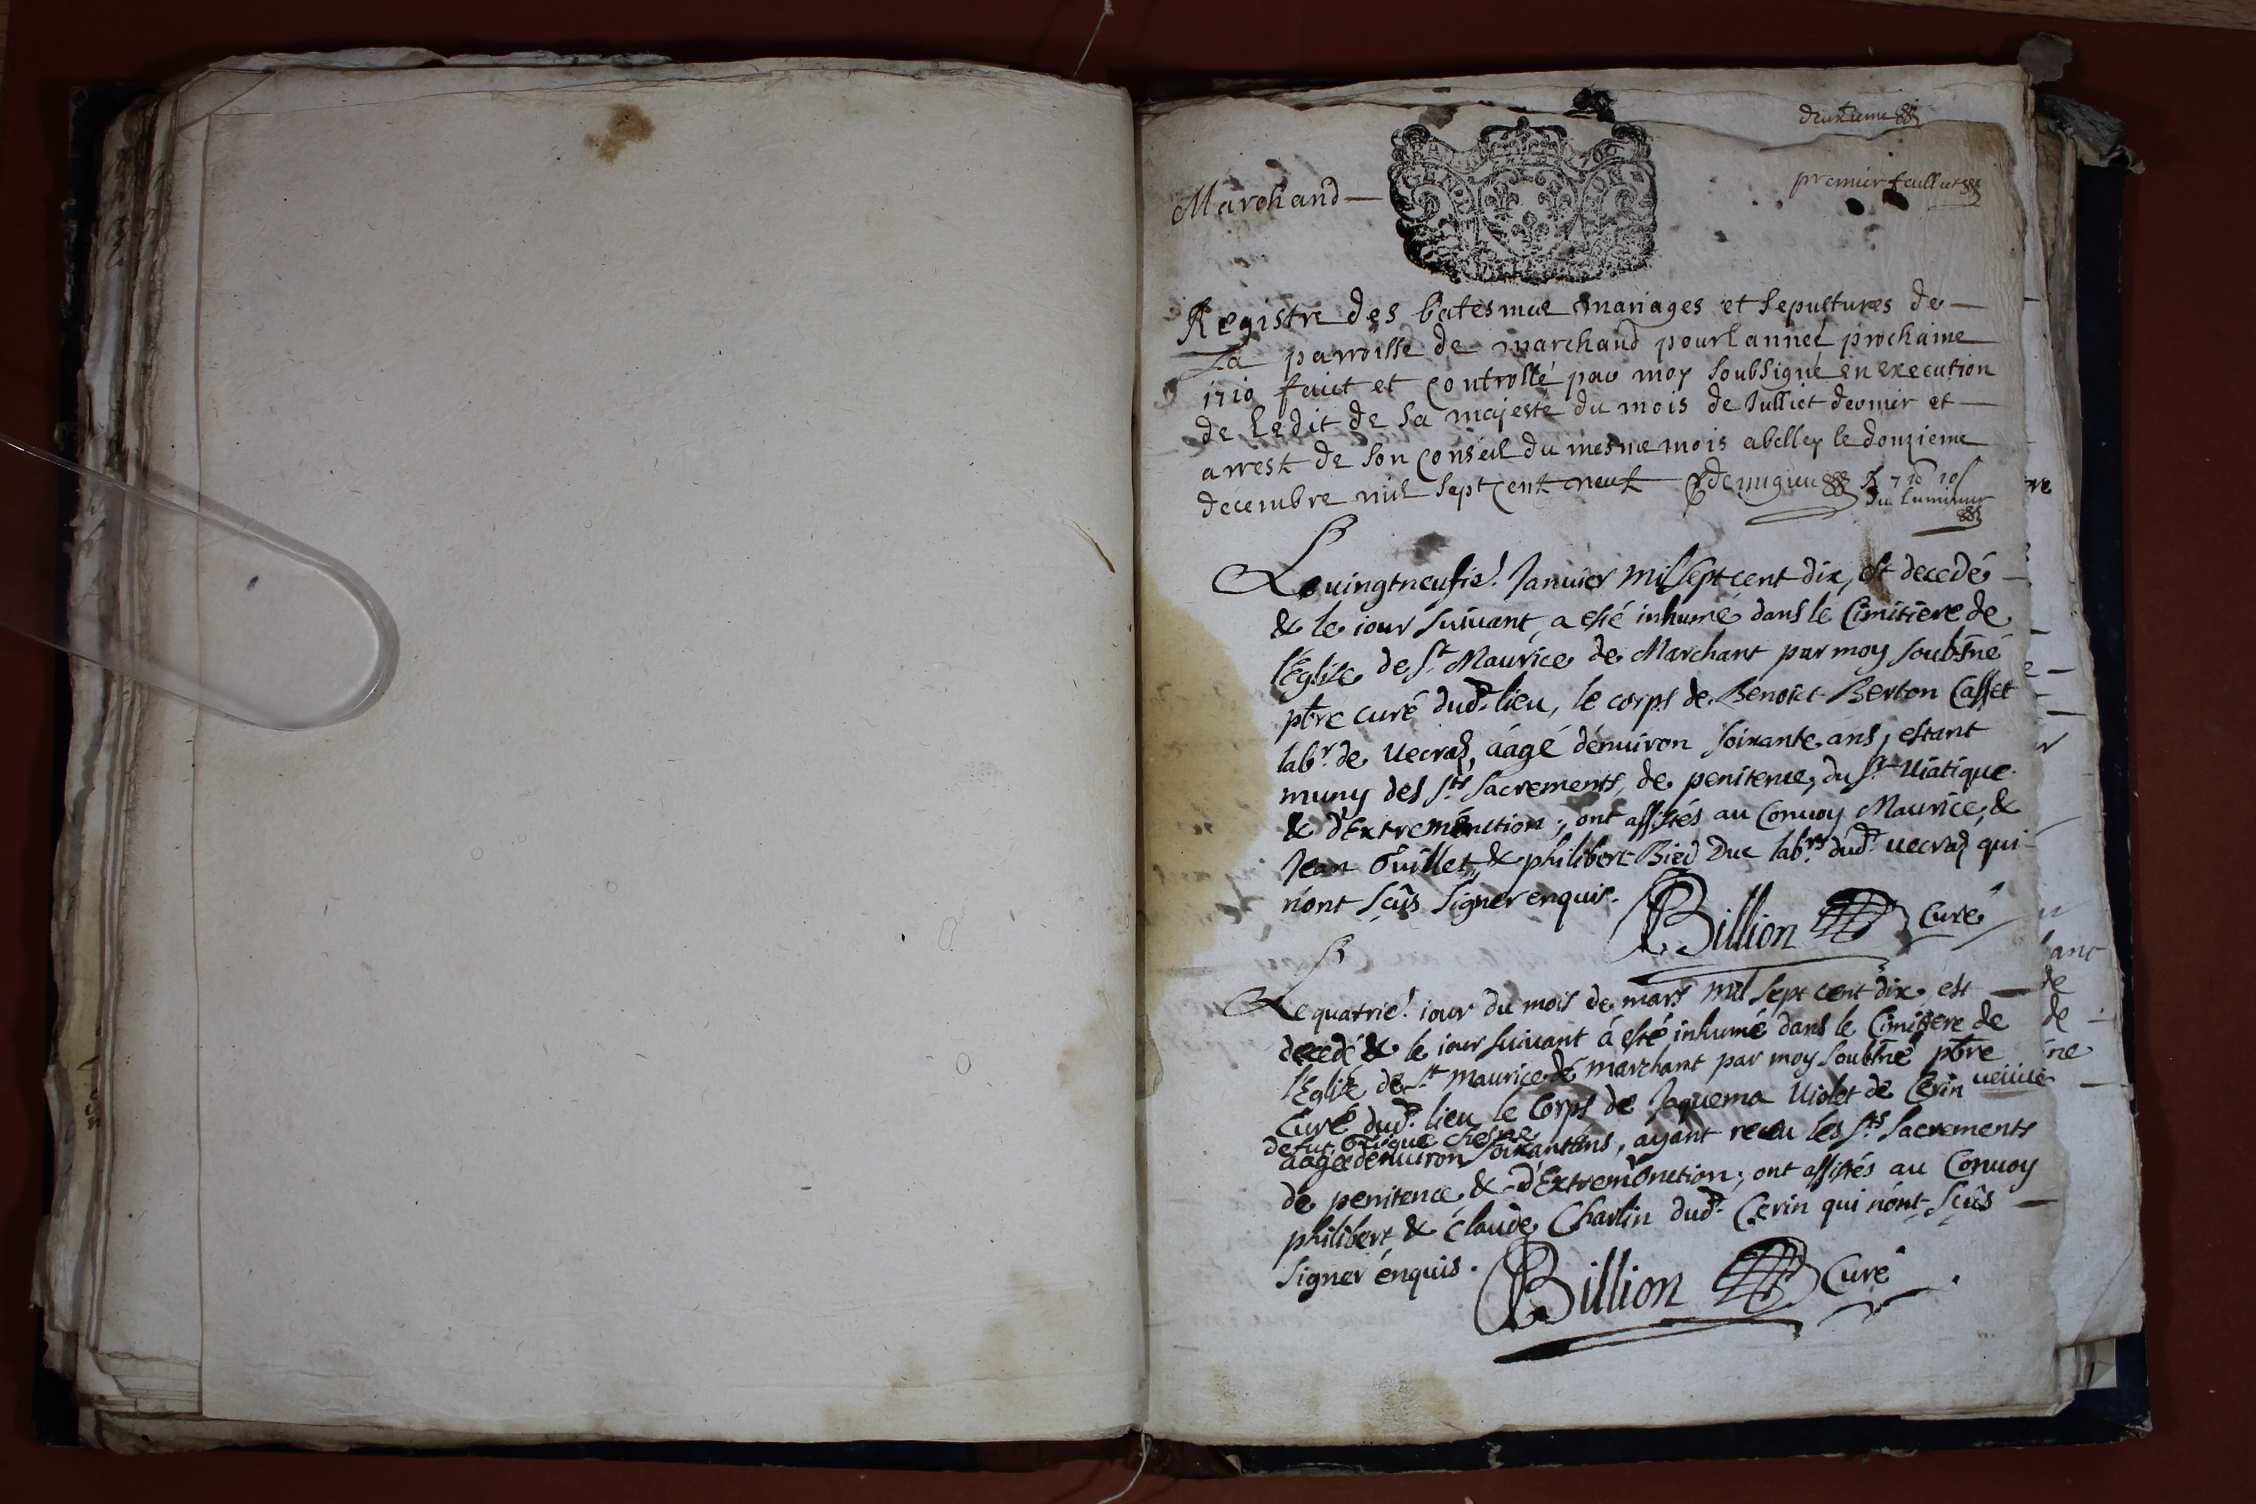 deuxieme
premier feulliet
Marchand
GEN
Registre des batesmes mariages et sepultures de
La parroisse de marchand pour lannee prochaine
1710 faict et controllé par moy soubsigné en execution
de Ledit de sa majesté du mois de Julliet dernier et
arrest de son conseil du mesme mois a belley le douzieme
decembre mil sept cent neuf Demigieu
Le vingtneufie. Janvier mil sept cent dix, est decedé
& le iour suivant, a esté inhumé dans le Cimitiere de
l'Eglise de St Maurice de Marchant par moy soubsné
pbre curé dud. lieu, le corps de Benoict Berton Casset
labr. de vecraz, aagé d'enuiron soixante ans, estant
muny des Sts sacrements, de penitence, du St. Viatique
& d'Extremeonction; ont assistés au Conuoy Maurice, &
Jean Guillet, & philibert Bied Duc labrs. dud. vecraz qui
n'ont sçûs signer enquis.
Billion Curé
Le quatrie. iour du mois de mars mil sept cent dix, est
decedé & le iour suiuant á esté inhumé dans le Cimitiere de
l'Eglise de St Maurice de marchant par moy soubsné pbre
Curé dud. lieu le Corps de Jaquema Violet de Cerin veuue
de fut
aagée d'enuiron soixantans, ayant receu les Sts. sacrements
de penitence & d'Extremeonction; ont assistés au Conuoy
philibert & Claude Charlin dud. Cerin qui n'ont sçûs
signer énquis.
Billion Curé